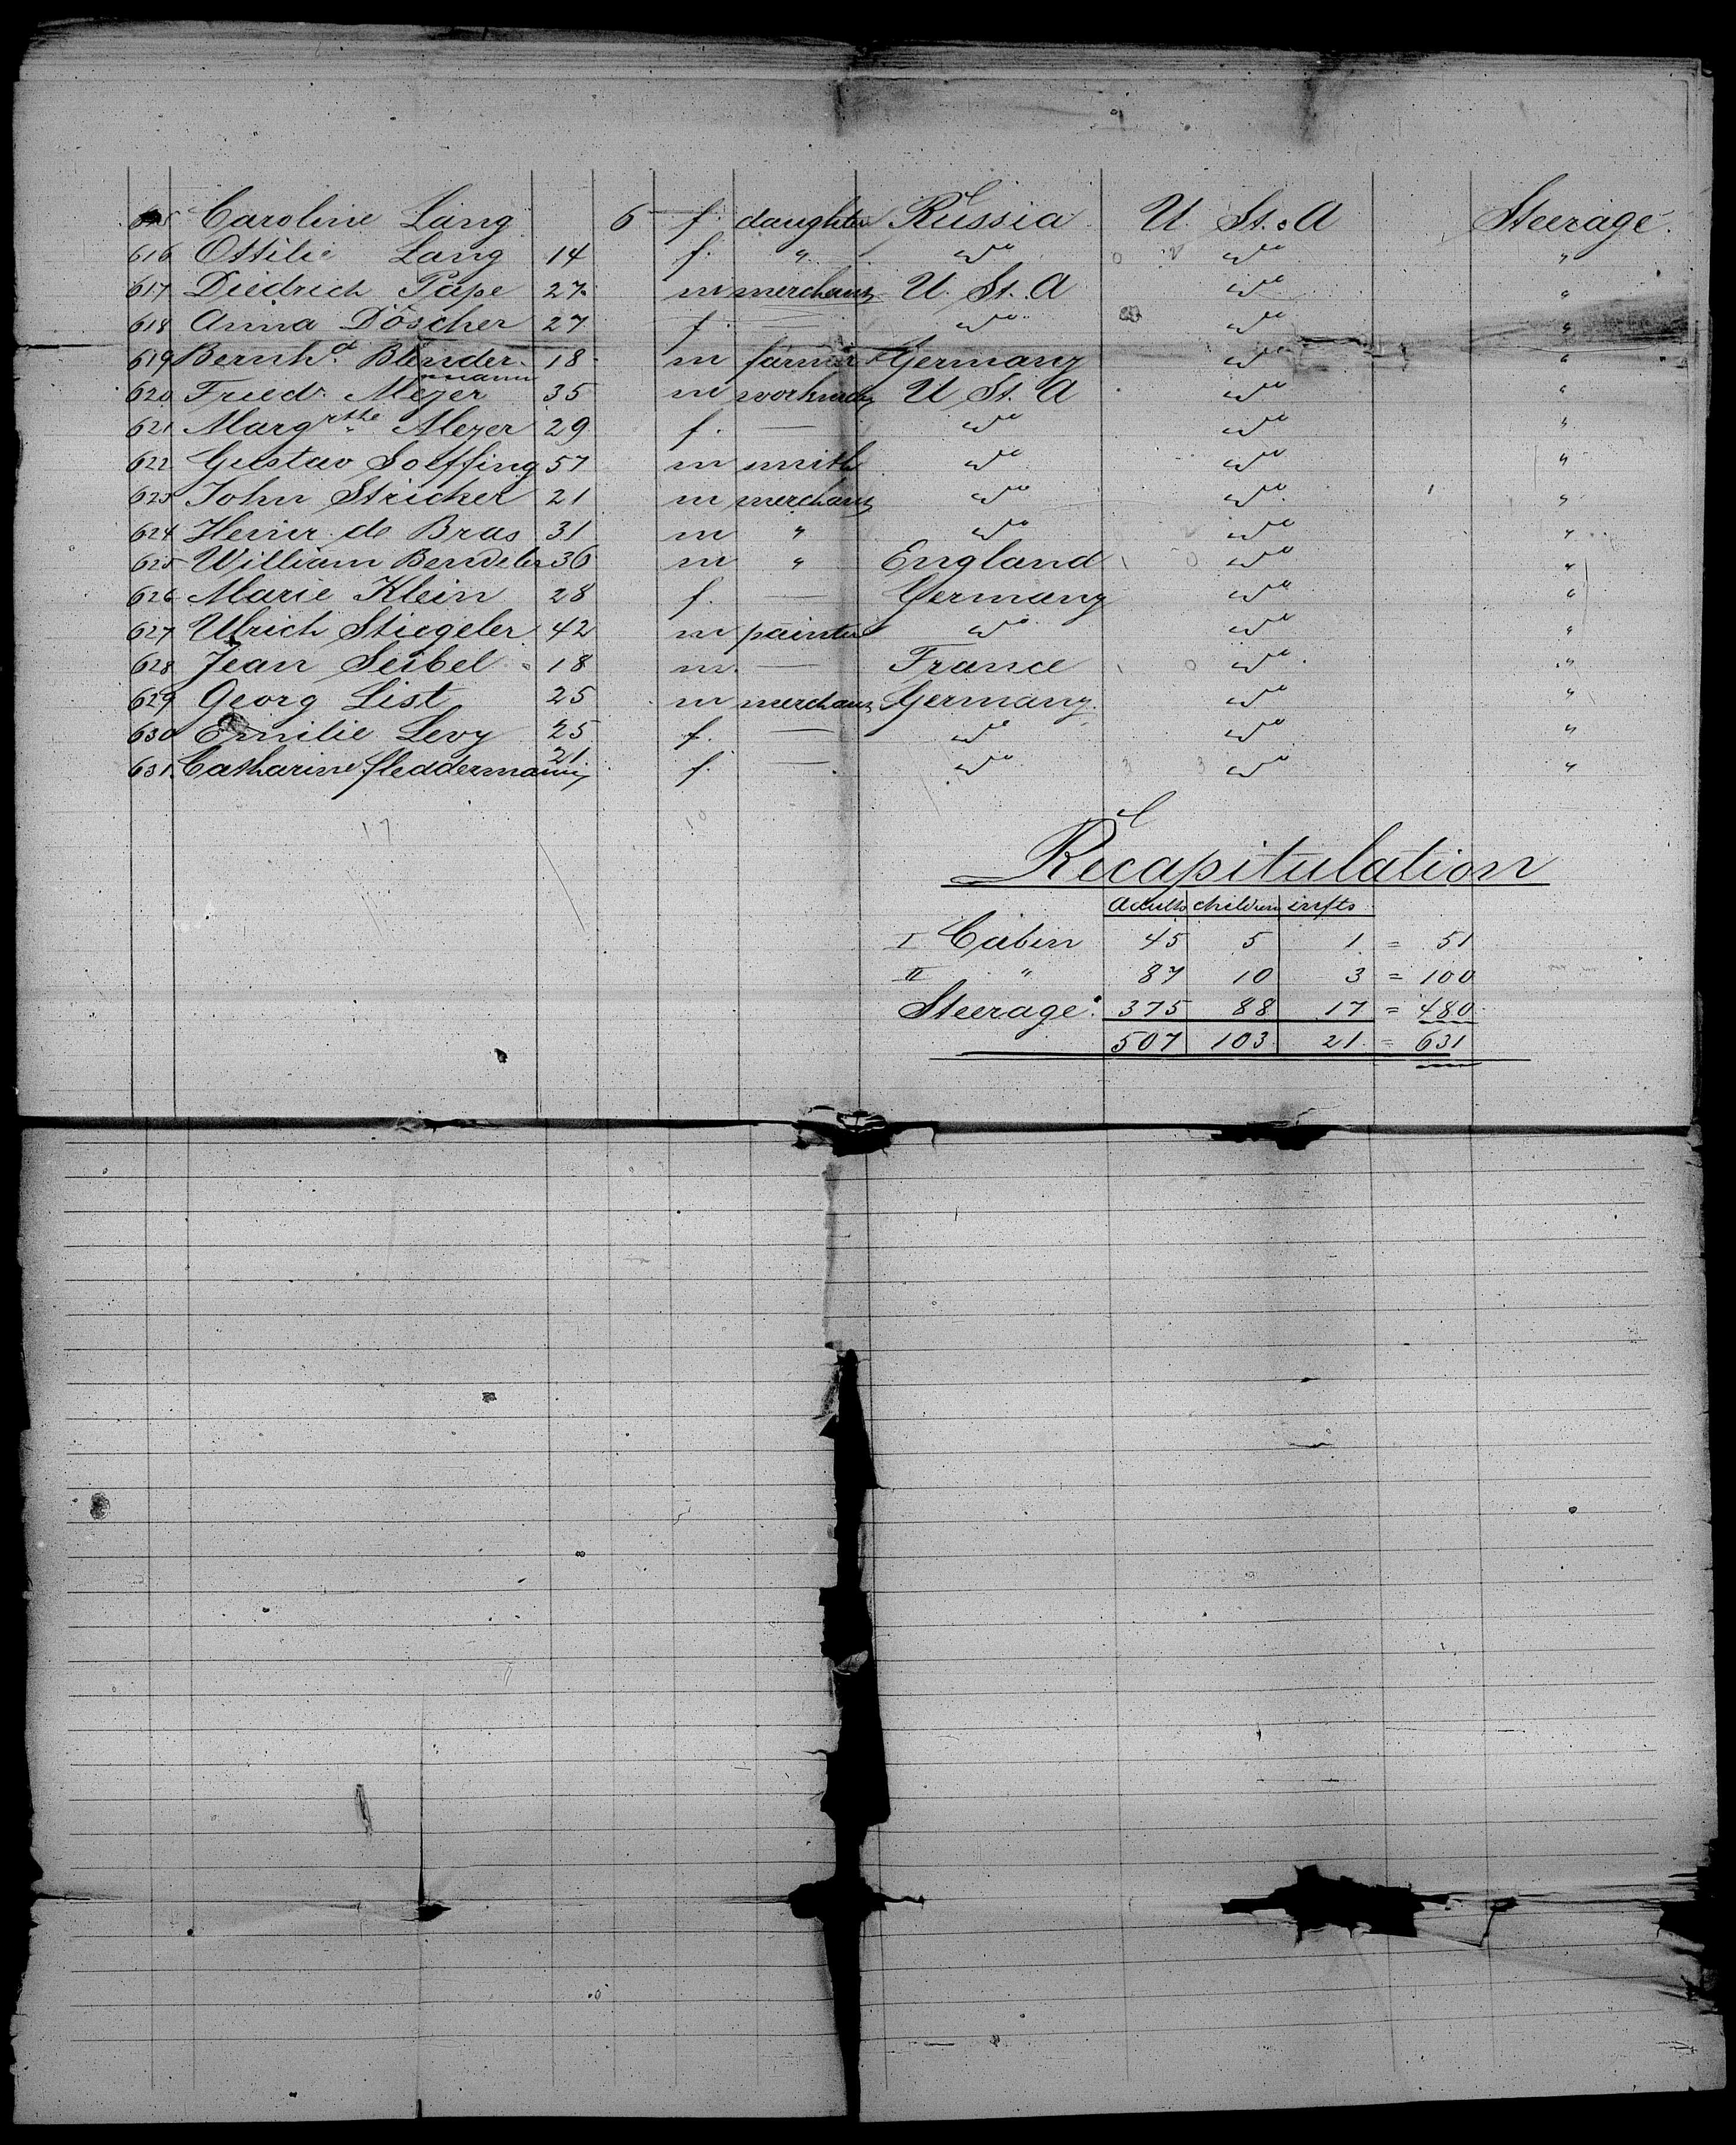 615 Caroline Lang 6 f. daughter Russia U. St. A Steerage.
616 Ottilie Lang 14 f. " do do "
617 Diedrich Pape 27 m merchant U. St. A do "
618 Anna Döscher 27 f. — do do "
619 Bernhd. Blender- 18 m farmer Germany do "
mann
620 Friedr. Meyer 35 m workman U St. A do "
621 Margrthe Meyer 29 f. — do do "
622 Gustav Soeffing 57 m smith do do "
623 John Stricker 21 m merchant do do "
624 Heinr. de Bras 31 m " do do "
625 William Bendeler 36 m " England do "
626 Marie Klein 28 f. — Germany do "
627 Ulrich Stiegeler 42 m painter do do "
628 Jean Seibel 18 m. — France do "
629 Georg List 25 m merchant Germany do "
630 Emilie Levy 25 f. — do do "
631 Catharine Fleddermann 21 f. — do do "
17 10
Recapitulation
Adults children infts
I Cabin 45 5 1 = 51
II " 87 10 3 = 100
Steerage: 375 88 17 = 480
507 103 21 = 631